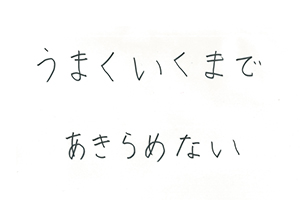 うまくいくまで
あきらめない